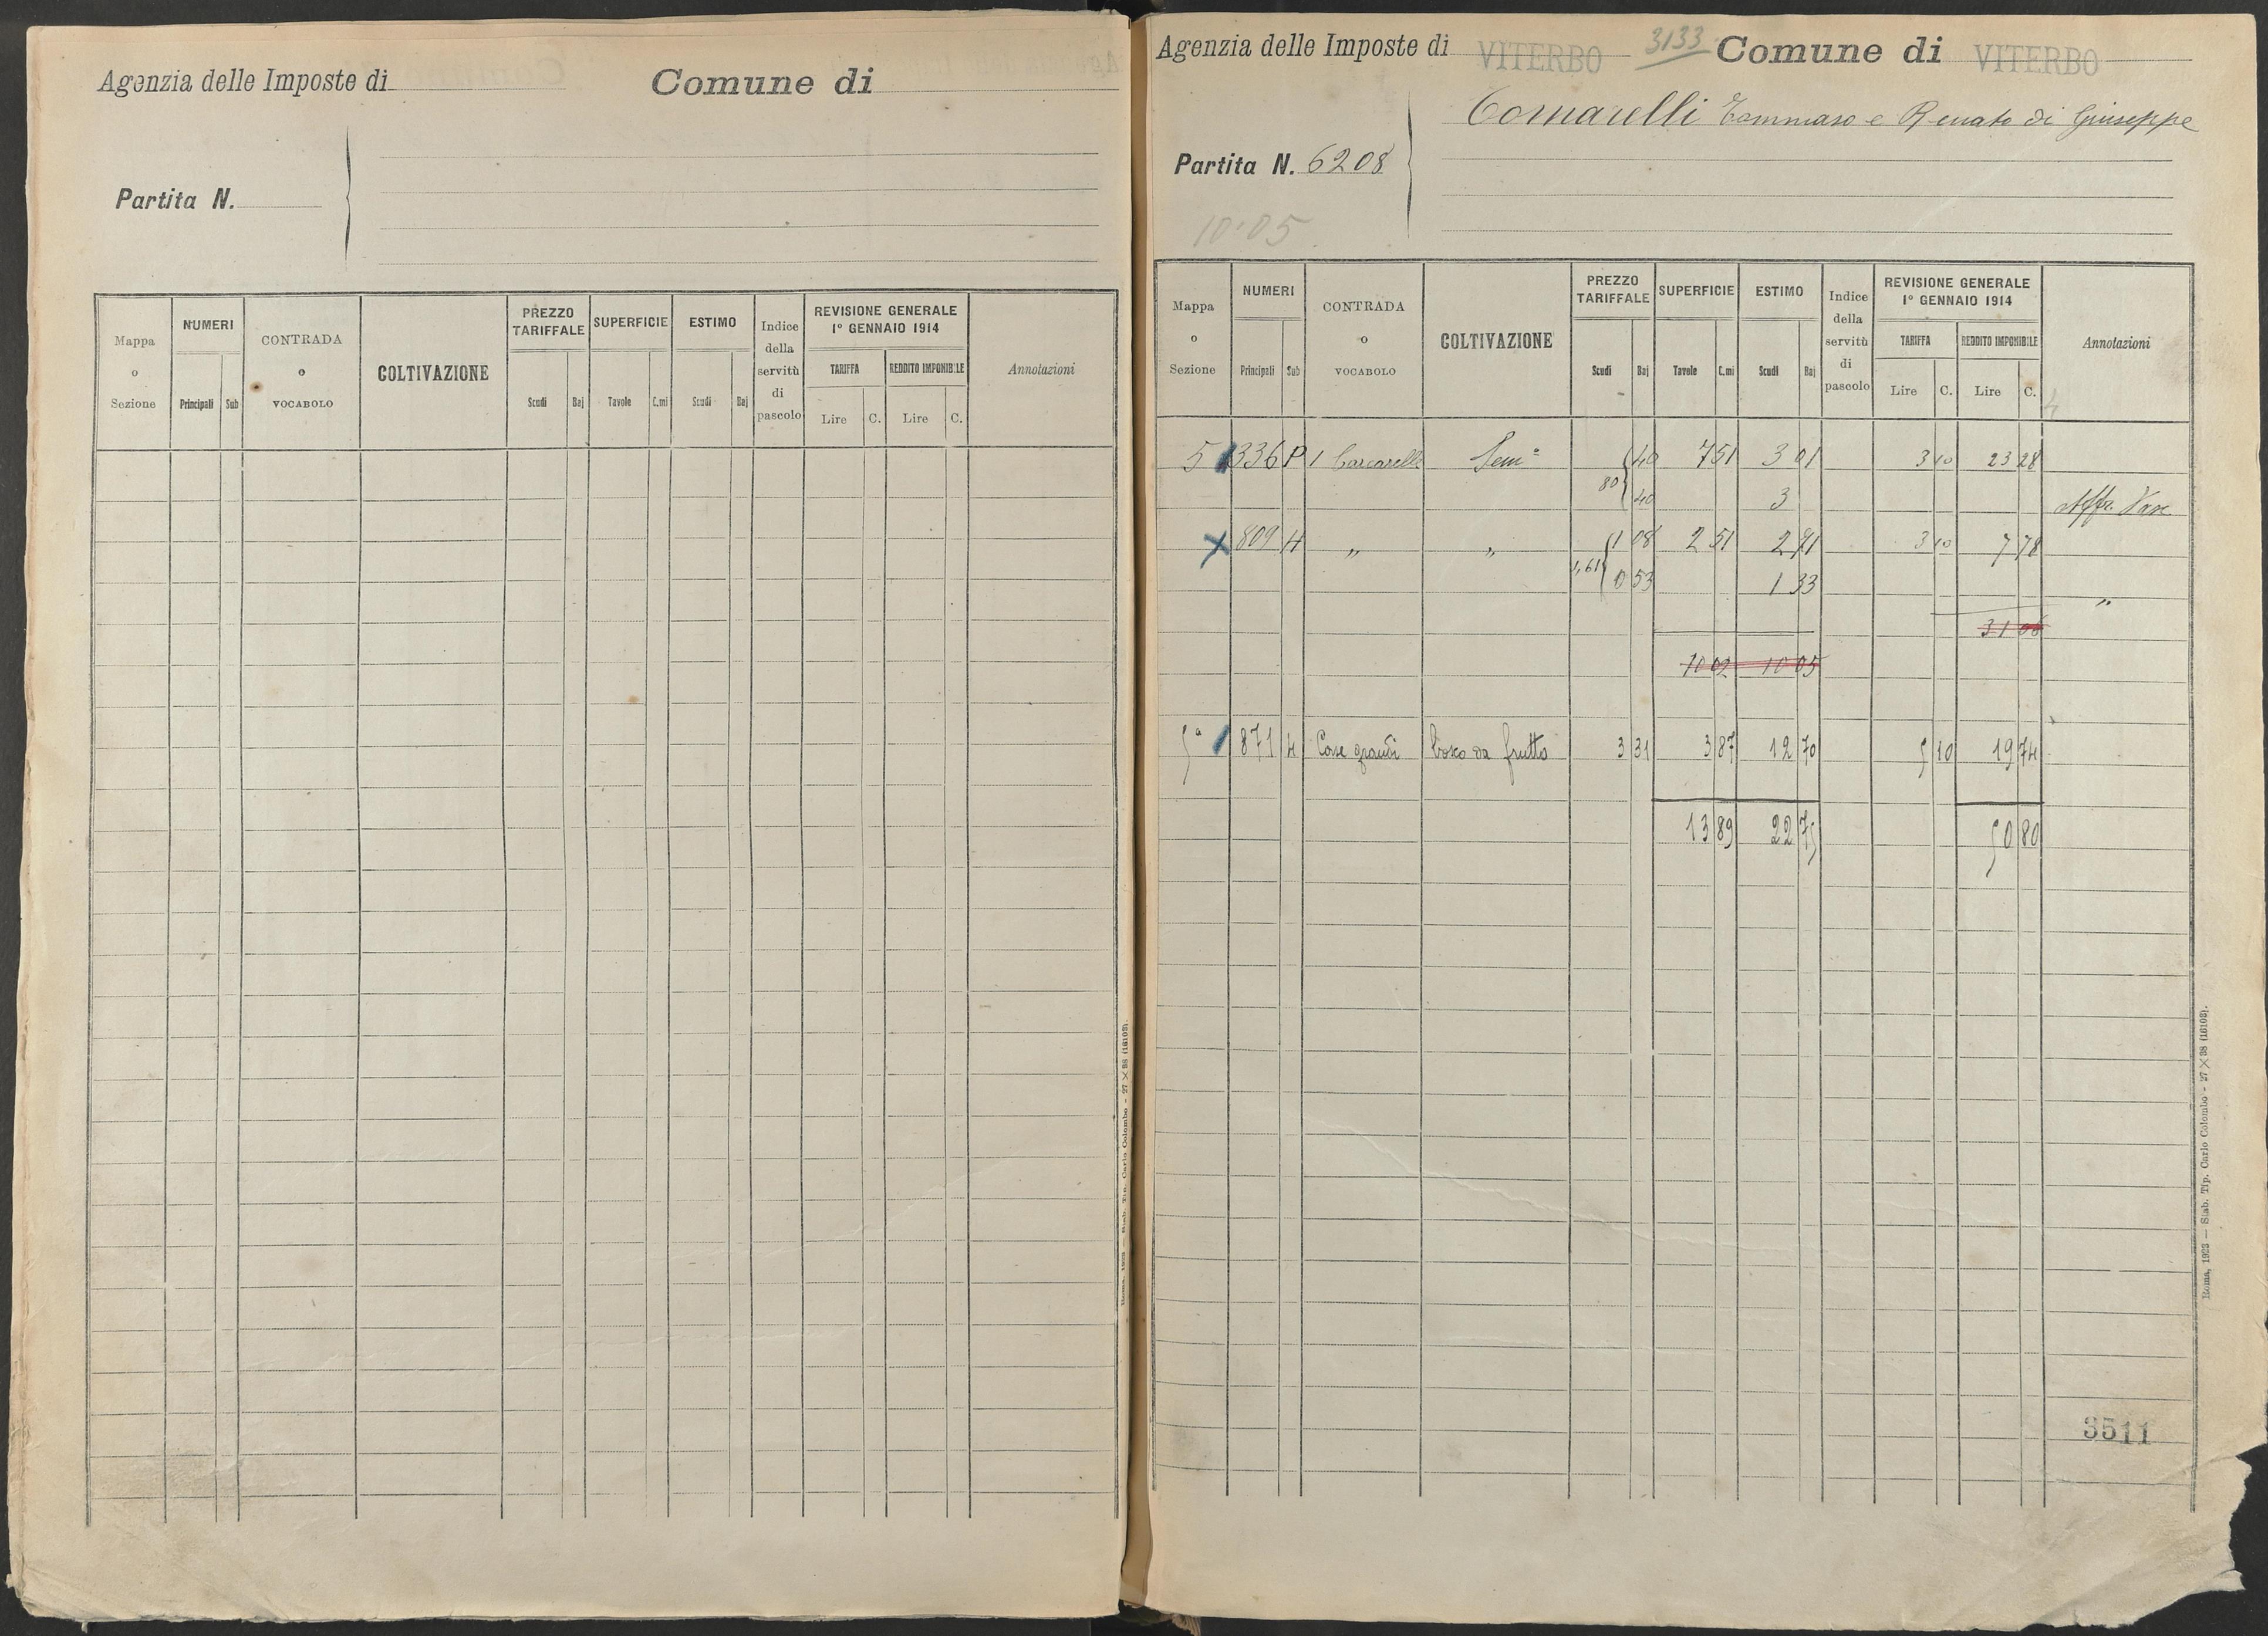 Agenzia delle Imposte di
Comune di
Partita N.
Mappa o Sezione
NUMERI
Principali Sub
CONTRADA o VOCABOLO
COLTIVAZIONE
PREZZO TARIFFALE
Scudi Baj
SUPERFICIE
Tavole C.mi
ESTIMO
Scudi Baj
Indice della servitù di pascolo
REVISIONE GENERALE
1º GENNAIO 1914
TARIFFA
Lire C.
REDDITO IMPONIBILE
Lire C.
Annotazioni
Roma, 1923 — Stab. Tip. Carlo Colombo - 27 X 38 (16103).
Agenzia delle Imposte di VITERBO 3133 Comune di VITERBO
Tommaso e Renato di Giuseppe
Partita N. 6208
10.05
Mappa o Sezione
NUMERI
Principali Sub
CONTRADA o VOCABOLO
COLTIVAZIONE
PREZZO TARIFFALE
Scudi Baj
SUPERFICIE
Tavole C.mi
ESTIMO
Scudi Baj
Indice della servitù di pascolo
REVISIONE GENERALE
1º GENNAIO 1914
TARIFFA
Lire C.
REDDITO IMPONIBILE
Lire C.
Annotazioni
5 336 P 1 Carcarelle Sem° 40 7 51 3 01 3 10 23 28
80 40 3
809 4 " " 1 08 2 51 2 71 3 10 7 78
1,61 0 53 1 33
"
31 06
10 02 10 05
5ª 871 4 Case grandi Bosco da frutto 3 31 3 87 12 70 5 10 19 74
13 89 22 75 50 80
3511
Roma, 1923 — Stab. Tip. Carlo Colombo - 27 X 38 (16103).